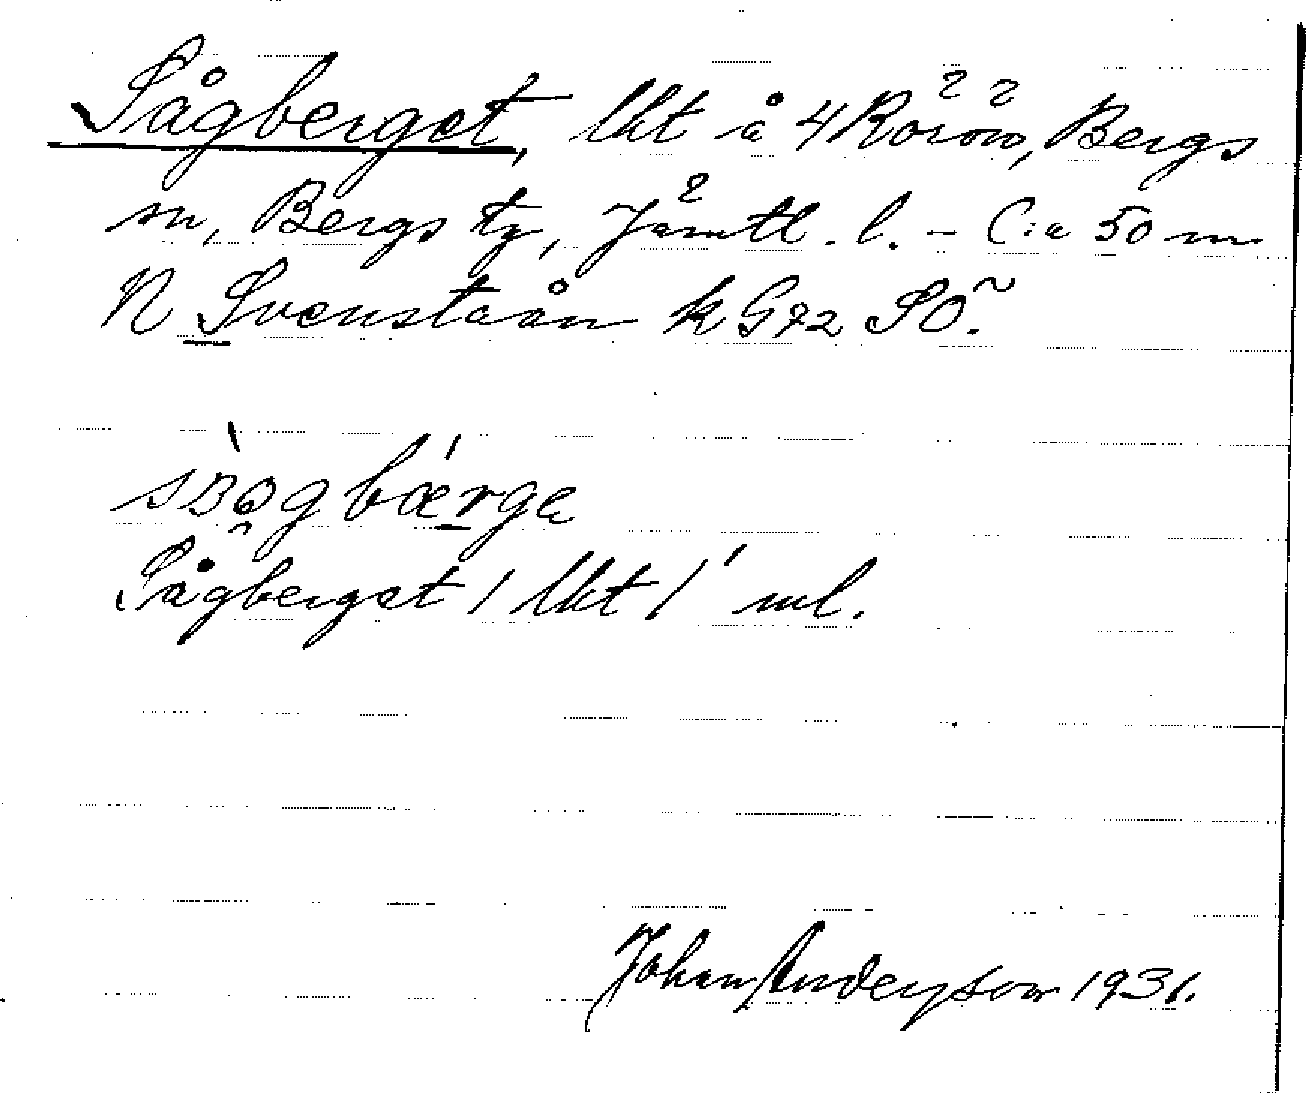 Sågberget, lht å 4 Rörön, Bergs
sn, Bergs tg, Jämtl. l. - C:a 50 m
N Svenstaån k G72 SÖ.
Sågberget / lht / ml.
Johan Anderson 1931.